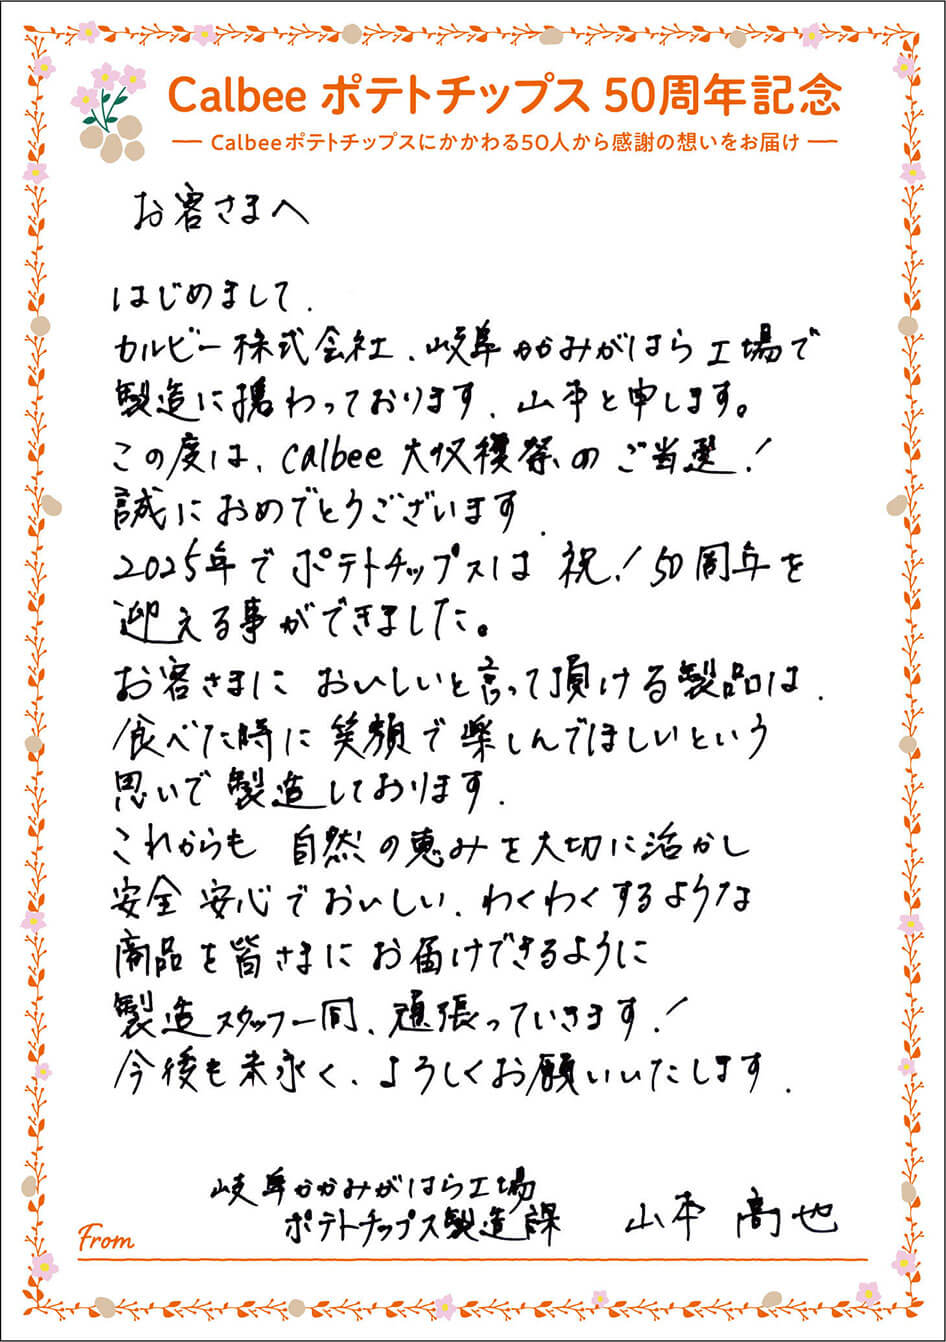 Calbee ポテトチップス 50周年記念
Calbeeポテトチップスにかかわる50人から感謝の想いをお届け
お客さまへ
はじめまして.
カルビー株式会社、岐阜かかみがはら工場で
製造に携わっております、山本と申します。
この度は、Calbee 大収穫祭のご当選!
誠におめでとうございます.
2025年でポテトチップスは 祝!50周年を
迎える事ができました。
お客さまに おいしいと言って頂ける製品は、
食べた時に笑顔で楽しんでほしいという
思いで製造しております.
これからも 自然の恵みを大切に活かし
安全 安心でおいしい、わくわくするような
商品を皆さまにお届けできるように
製造スタッフ一同、頑張っていきます!
今後も末永く、よろしくお願いいたします.
岐阜かかみがはら工場
ポテトチップス製造課 山本 高也
From